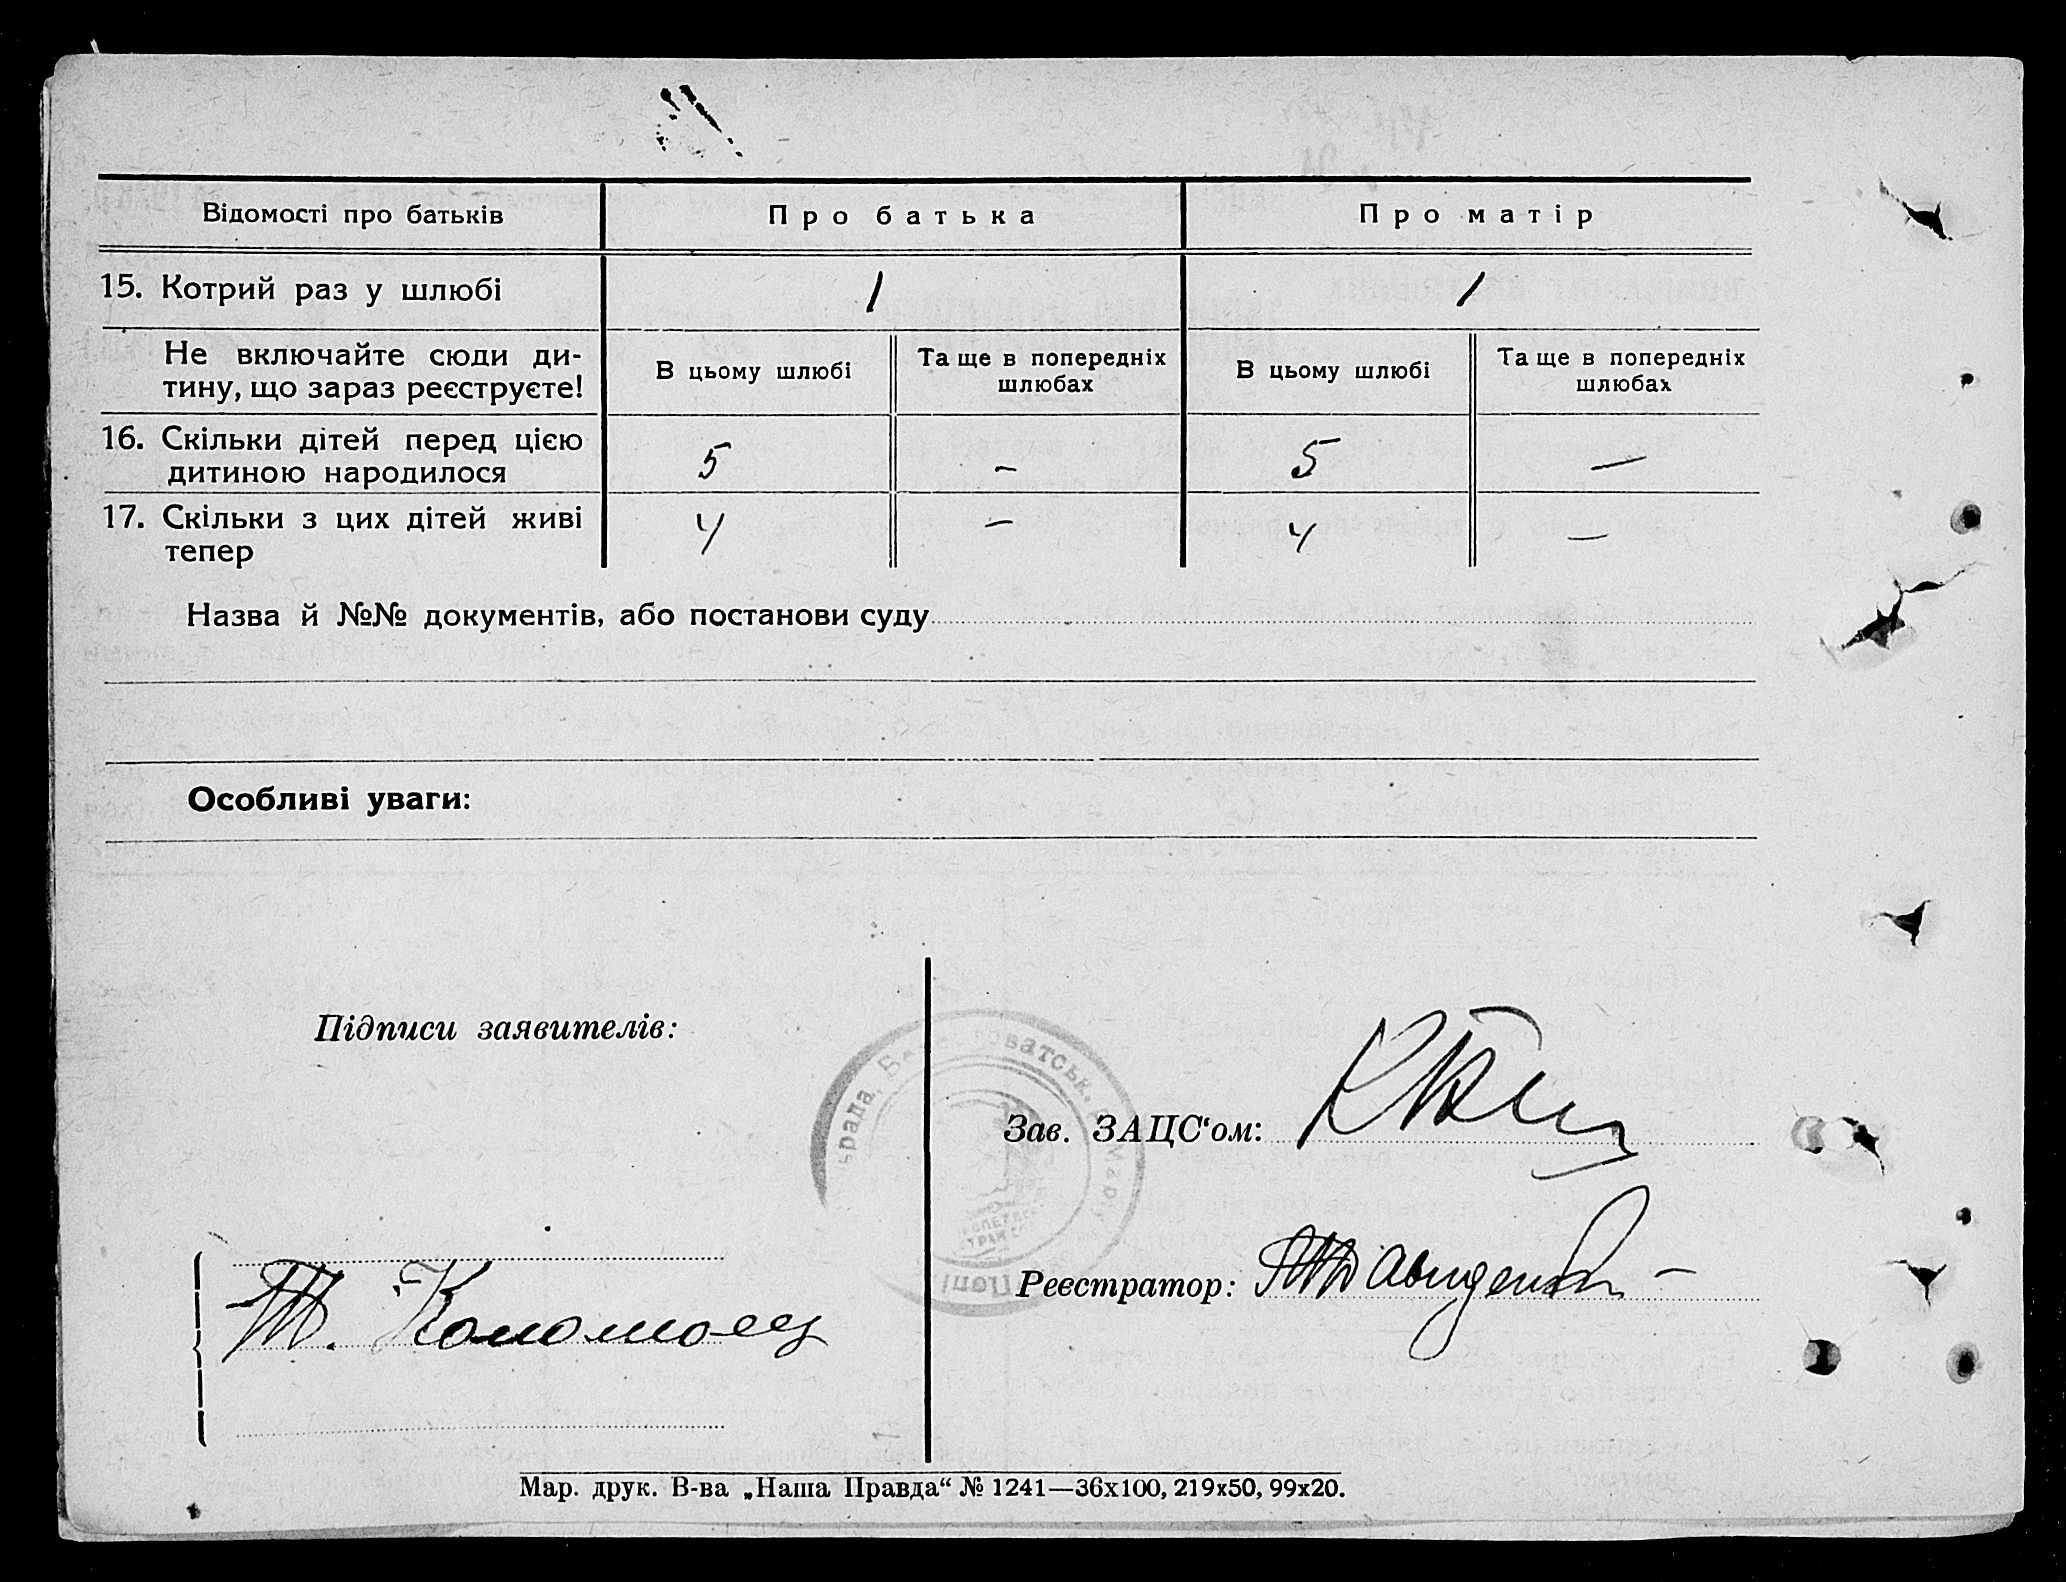 Відомості про батьків
Про батька
Про матір
15. Котрий раз у шлюбі
1
1
Не включайте сюди ди-
тину, що зараз реєструєте!
В цьому шлюбі
Та ще в попередніх
шлюбах
В цьому шлюбі
Та ще в попередніх
шлюбах
16. Скільки дітей перед цією
дитиною народилося
5
–
5
–
17. Скільки з цих дітей живі
тепер
4
–
4
–
Назва й №№ документів, або постанови суду
Особливі уваги:
Підписи заявителів:
Зав. ЗАЦС‘ом:
Реєстратор:
Т. Коломоец
Мар. друк. В-ва „Наша Правда“ № 1241—36х100, 219х50, 99х20.